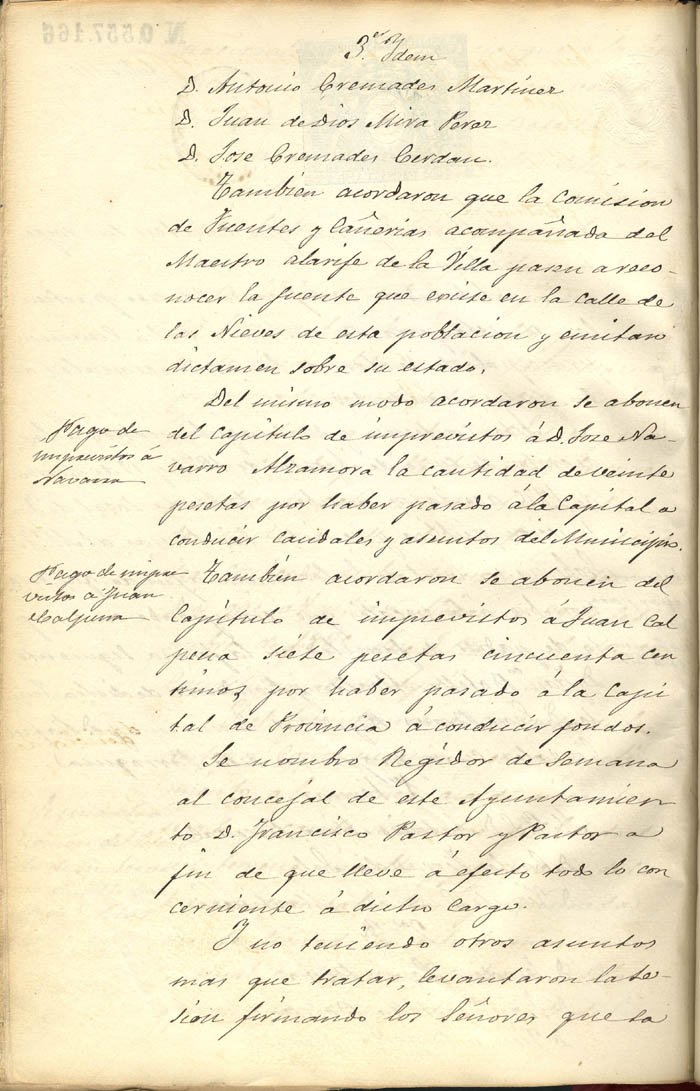 N 0.557.166
3.er Ydem
D. Antonio Cremades Martinez
D. Juan de Dios Mira Perez
D. Jose Cremades Cerdan.
Tambien acordaron que la Comision
de Fuentes y Cañerias acompañada del
Maestro alarife de la Villa pasen a reco-
nocer la fuente que existe en la calle de
las Nieves de esta poblacion y emitan
dictamen sobre su estado.
Del mismo modo acordaron se abonen
Pago de
imprevistos á
Navarro
del Capitulo de imprevistos á D. Jose Na-
varro Alzamora la cantidad de veinte
pesetas por haber pasado á la Capital a
conducir caudales y asuntos del Municipio.
Pago de impre
vistos a Juan
Calpena
Tambien acordaron se abonen del
Capitulo de imprevistos á Juan Cal
pena siete pesetas cincuenta cen
timos, por haber pasado á la Capi
tal de Provincia á conducir fondos.
Se nombro Regidor de Semana
al concejal de este Ayuntamien
to D. Francisco Pastor y Pastor a
fin de que lleve á efecto todo lo con
cerniente á dicho cargo.
Y no teniendo otros asuntos
mas que tratar, levantaron la se-
sion firmando los Señores que sa